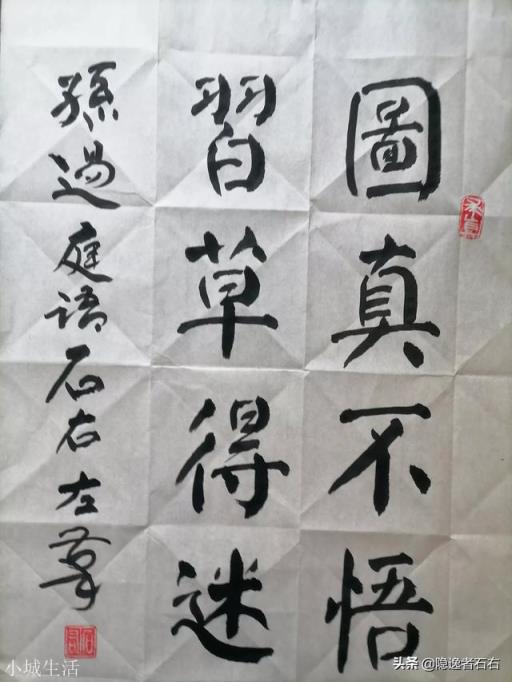 圖真不悟
習草得迷
孫過庭語石右左筆
小城生活
头条 @隐逸者石右